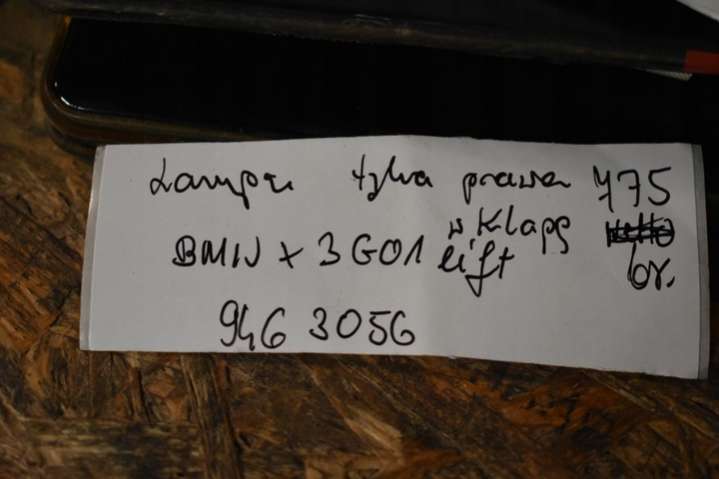 Lampa tylna prawa 475
w Klapę
BMW X3 G01 lift br.
946 3056